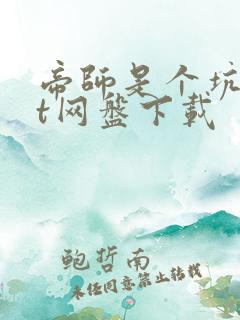 帝师是个坑
t网盘下载
鲍哲南
未经同意禁止转载